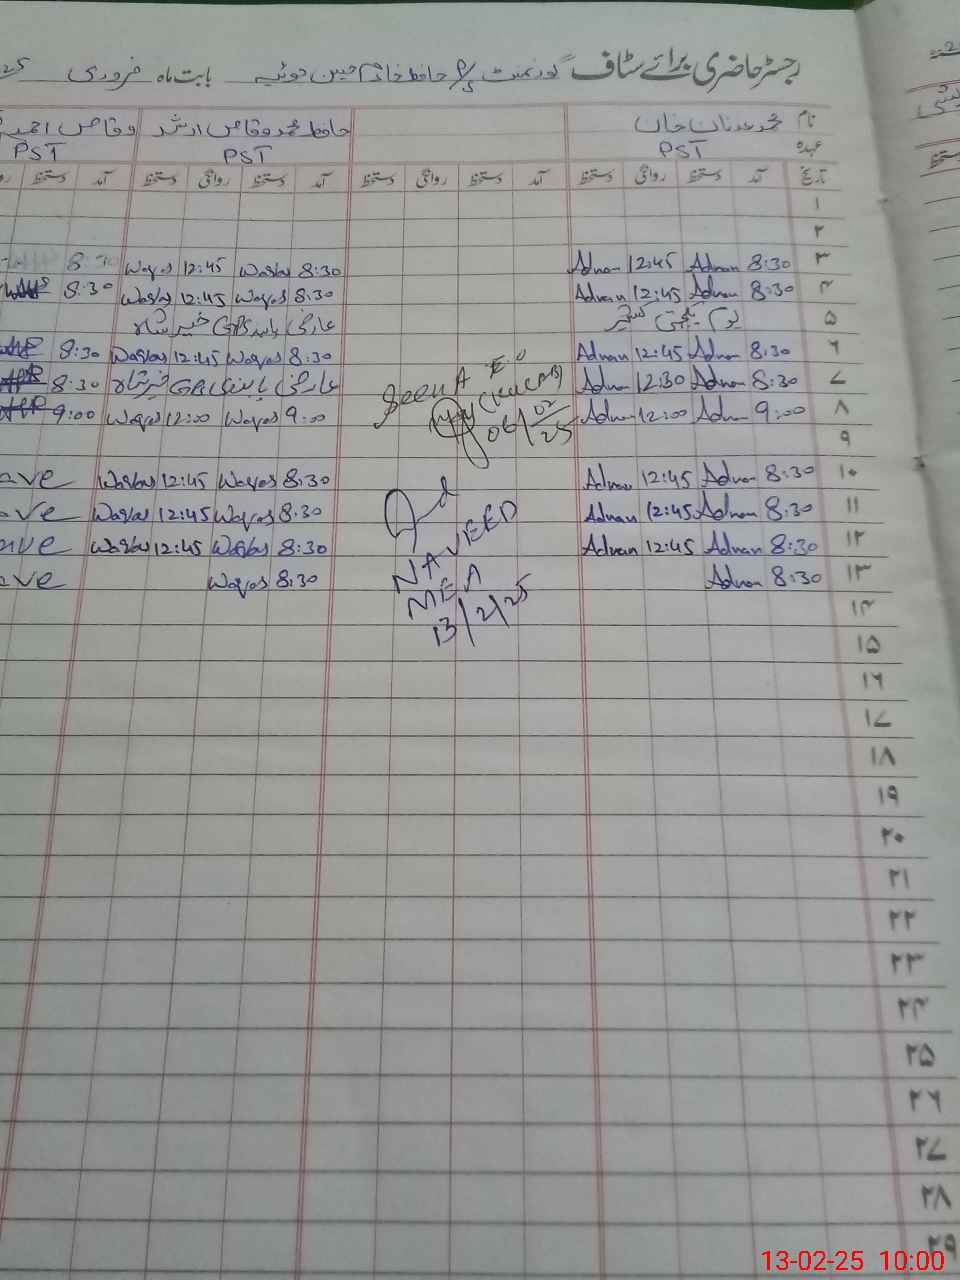 رجسٹر حاضری برائے سٹاف گورنمنٹ P/S حافظ خادم حسین دوئیہ بابت ماہ فروری 25
نام محمد عدنان خان حافظ محمد وقاص ارشد وقاص احمد
عہدہ PST PST PST
تاریخ آمد دستخط روانگی دستخط آمد دستخط روانگی دستخط آمد دستخط روانگی دستخط آمد دستخط
۱
۲
۳ 8:30 Adnan 12:45 Adnan 8:30 Waqas 12:45 Waqas 8:30
۴ 8:30 Adnan 12:45 Adnan 8:30 Waqas 12:45 Waqas 8:30
۵ یوم یکجہتی کشمیر عارضی GPS
۶ 8:30 Adnan 12:45 Adnan 8:30 Waqas 12:45 Waqas 8:30
۷ 8:30 Adnan 12:30 Adnan Seen عارضی 8:30
۸ 9:00 Adnan 12:00 Adnan 06/02/25 9:00 Waqas 12:00 Waqas 9:00
۹
۱۰ 8:30 Adnan 12:45 Adnan 8:30 Waqas 12:45 Waqas ave
۱۱ 8:30 Adnan 12:45 Adnan 8:30 Waqas 12:45 Waqas ave
۱۲ 8:30 Adnan 12:45 Adnan NAVEED 8:30 Waqas 12:45 Waqas ave
۱۳ 8:30 Adnan MEA 8:30 Waqas ave
۱۴ 13/2/25
۱۵
۱۶
۱۷
۱۸
۱۹
۲۰
۲۱
۲۲
۲۳
۲۴
۲۵
۲۶
۲۷
۲۸
۲۹
13-02-25 10:00